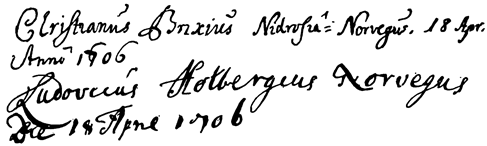 Christianus Brixius Nidrosiâ= Norvegus. 18 Apr.
Anno 1706
Ludovicus Holbergius Norvegus
Die 18 April 1706